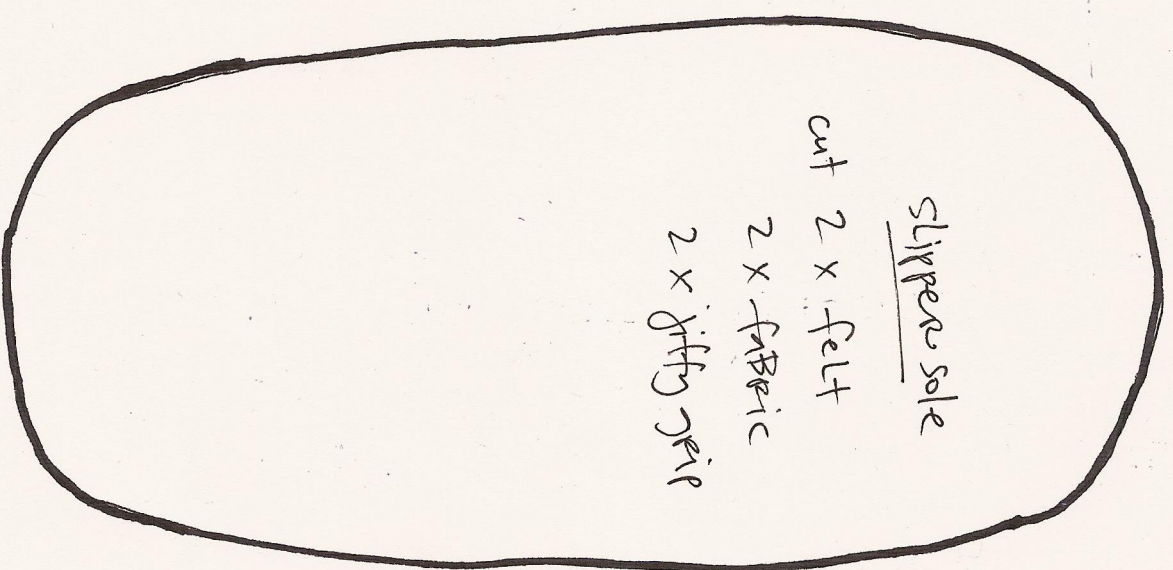 slipper sole
cut 2 x felt
2 x faBric
2 x jiffy grip